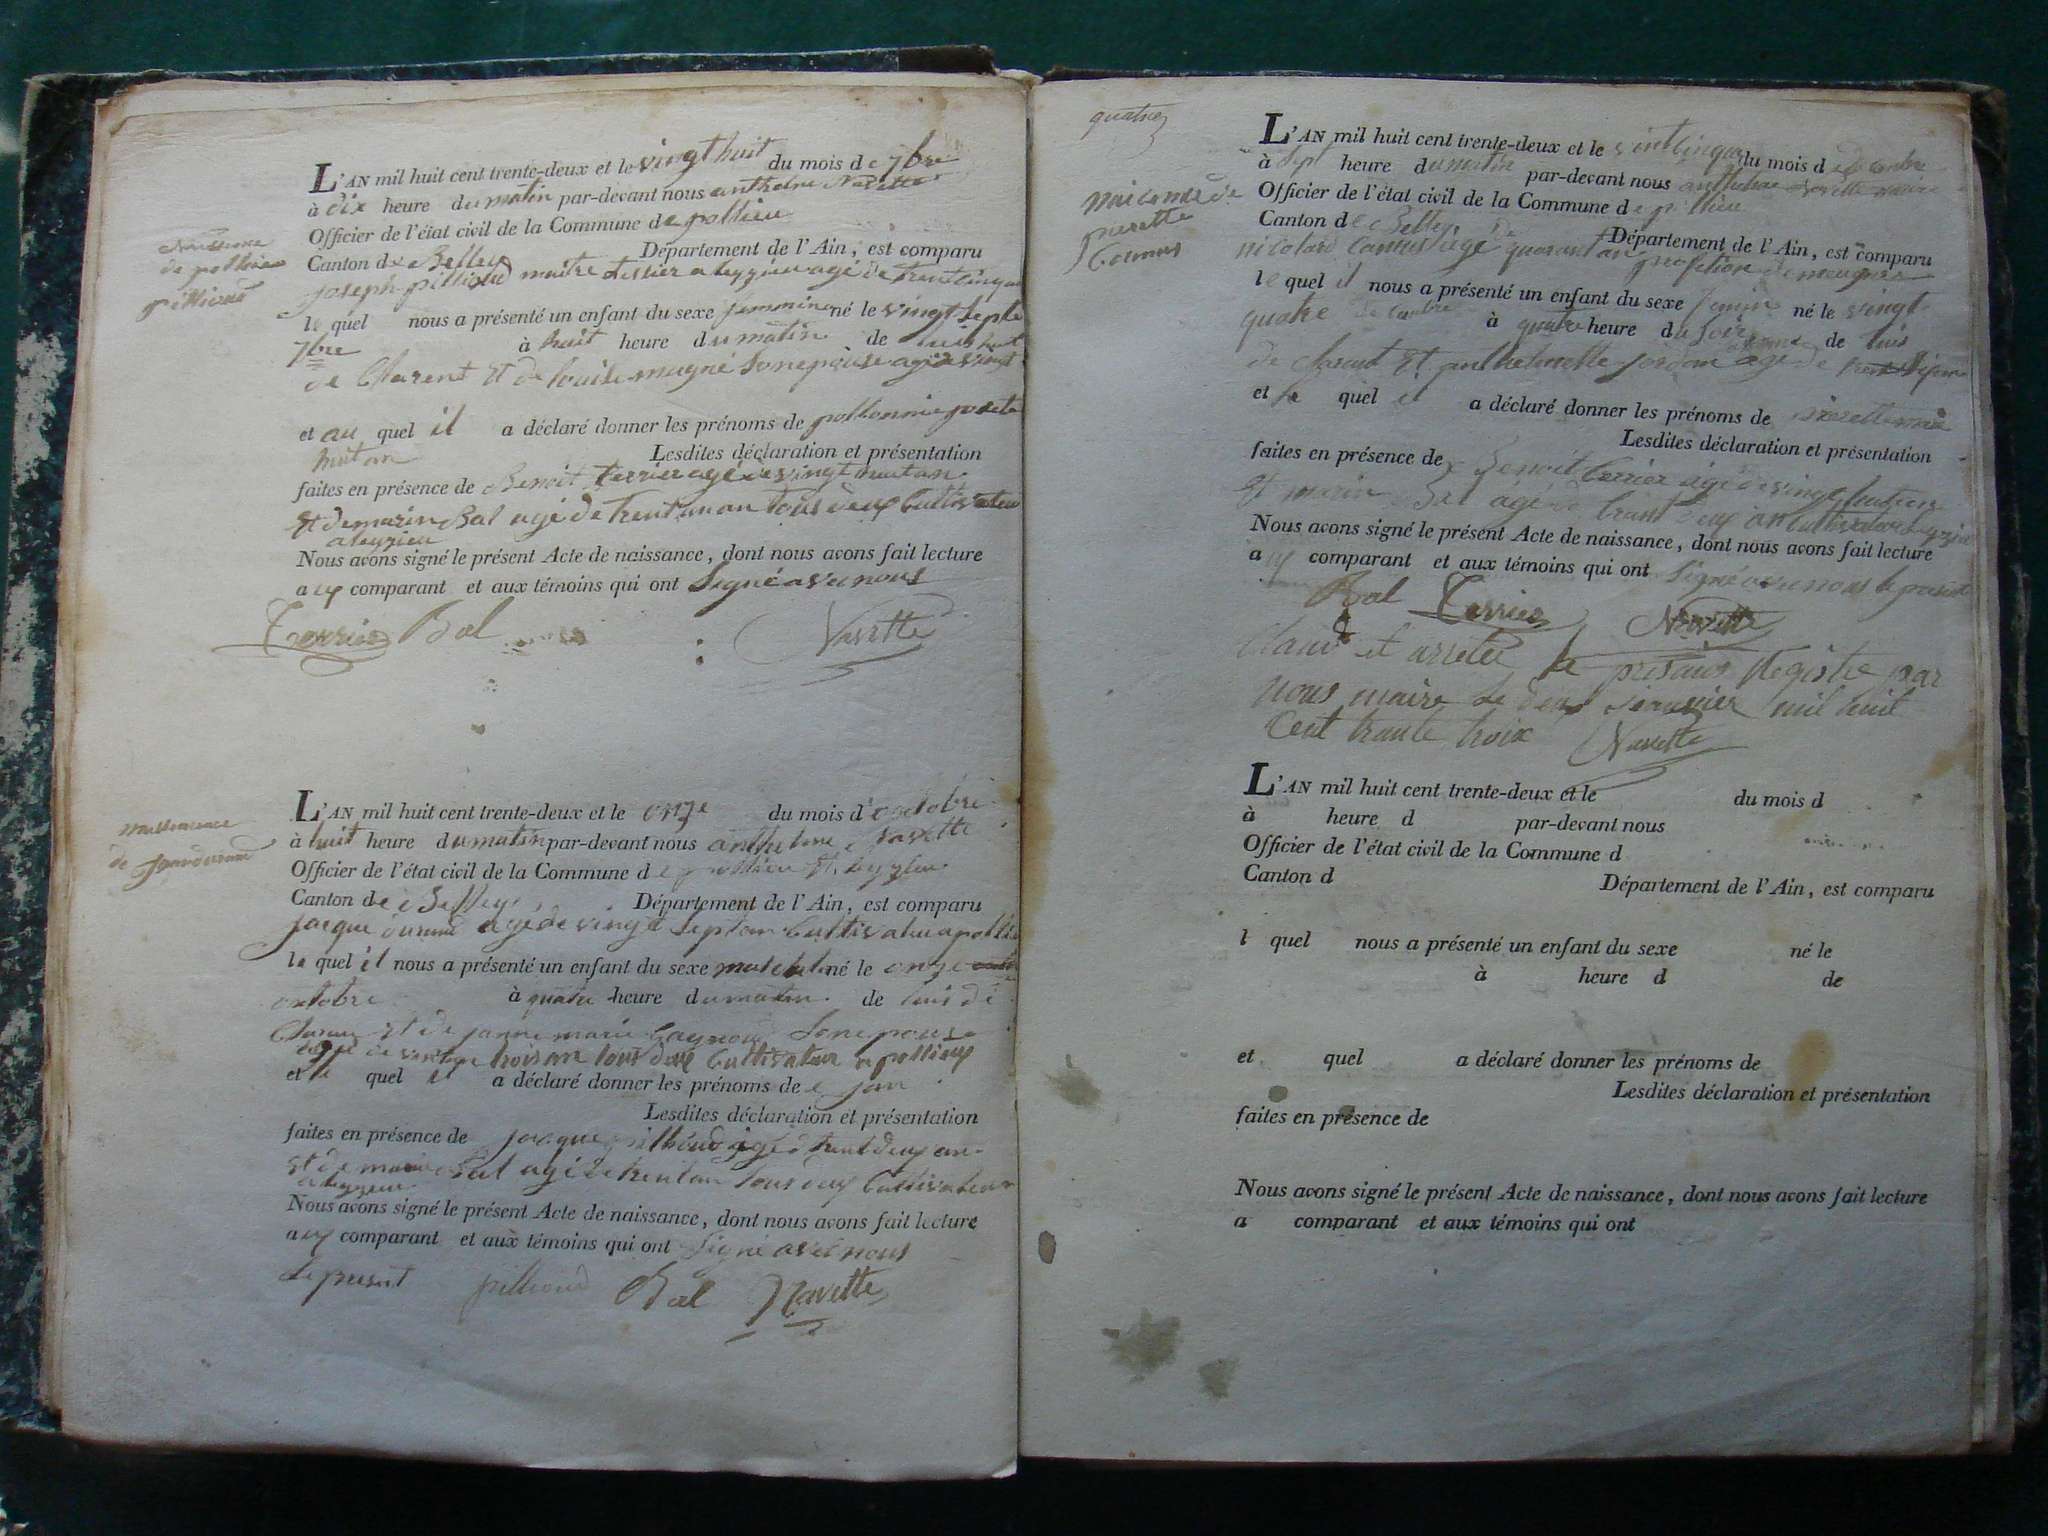 naissance
de pollonie
pillioud
L'AN mil huit cent trente-deux et le vingt huit du mois de 7bre
à dix heure du matin par-devant nous anthelme Navette
Officier de l'état civil de la Commune de pollieu
Canton de Belley Département de l'Ain, est comparu
joseph pillioud maitre tissier a leyzieu agé de trent cinq an
le quel nous a présenté un enfant du sexe femminin né le vingt sept
7bre à huit heure du matin de luis
de Clarent et de louise magné son epouse agé de vingt
huit an
et au quel il a déclaré donner les prénoms de pollonnie
Lesdites déclaration et présentation
faites en présence de Benoit terrier agé de vingt huit an
et de marin Bal agé de trent un an tous deux Cultivateur
a leyzieu
Nous avons signé le présent Acte de naissance, dont nous avons fait lecture
a ux comparant et aux témoins qui ont signé avec nous
Terrier Bal Navette
naissance
de jean durand
L'AN mil huit cent trente-deux et le onze du mois d'octobre
à huit heure du matin par-devant nous anthelme Navette
Officier de l'état civil de la Commune de pollieu et leyzieu
Canton de Belley Département de l'Ain, est comparu
jacque durand agé de vingt sept an Cultivateur a pollieu
le quel il nous a présenté un enfant du sexe masculin né le onze
octobre à quatre heure du matin de luis de
Clarent et de janne marie son epouse
agé de vingt trois an tous deux Cultivateur a pollieux
et le quel il a déclaré donner les prénoms de jean
Lesdites déclaration et présentation
faites en présence de jacque pillioud agé de trent deux an
et de marin Bal agé de trent an tous deux Cultivateur
a leyzieu
Nous avons signé le présent Acte de naissance, dont nous avons fait lecture
a ux comparant et aux témoins qui ont signé avec nous
le present pillioud Bal Navette
quatre
naissance de
pierette
Camus
L'AN mil huit cent trente-deux et le vint cinque du mois de decembre
à sept heure du matin par-devant nous anthelme Navette maire
Officier de l'état civil de la Commune de pollieu
Canton de Belley Département de l'Ain, est comparu
nicolard Camus agé de quarant an profetion de meugnier
le quel il nous a présenté un enfant du sexe feminin né le vingt
quatre decembre à quatre heure du soir de luis
de clarent et anthelmette jordan agé de
et le quel il a déclaré donner les prénoms de pierette marie
Lesdites déclaration et présentation
faites en présence de Benoit terrier agé de vingt huit an
et marin Bal agé de trent deux an Cultivateur a leyzieu
Nous avons signé le présent Acte de naissance, dont nous avons fait lecture
a ux comparant et aux témoins qui ont signé avec nous le present
Bal Terrier Navette
et arretee le presant Registre par
nous maire le deux janvier mil huit
Cent trante troix Navette
L'AN mil huit cent trente-deux et le du mois d
à heure d par-devant nous
Officier de l'état civil de la Commune d
Canton d Département de l'Ain, est comparu
l quel nous a présenté un enfant du sexe né le
à heure d de
et quel a déclaré donner les prénoms de
Lesdites déclaration et présentation
faites en présence de
Nous avons signé le présent Acte de naissance, dont nous avons fait lecture
a comparant et aux témoins qui ont